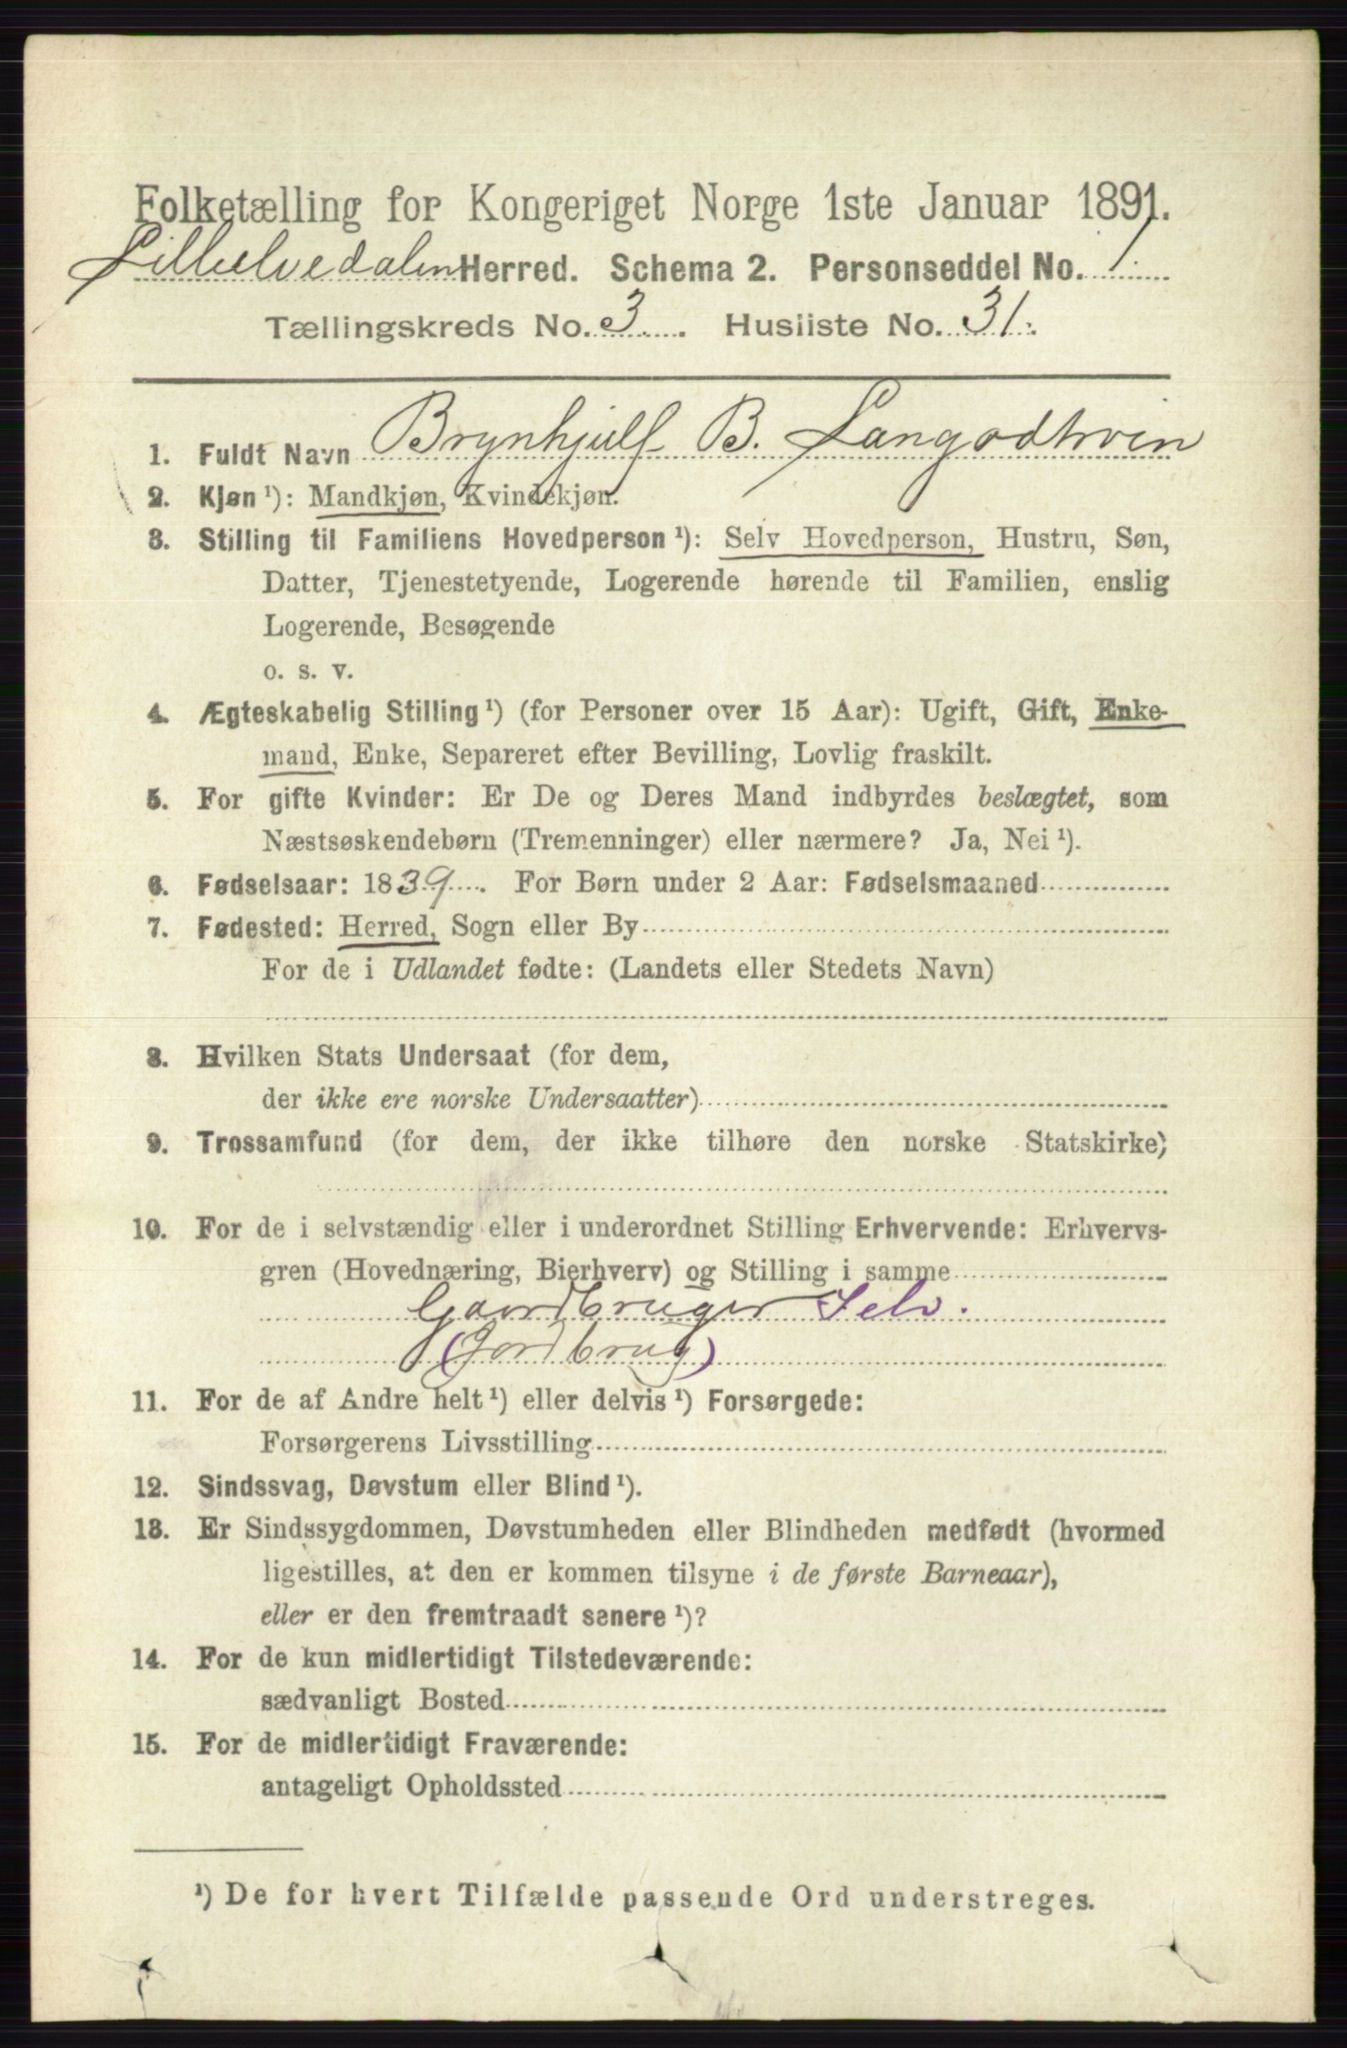 Folketælling for Kongeriget Norge 1ste Januar 1891.
Lilleelvedalen Herred. Schema 2. Personseddel No. 1
Tællingskreds No. 3. Husliste No. 31.
1. Fuldt Navn Brynhjulf B. Langodtroin
2. Kjøn ¹): Mandkjøn, Kvindekjøn.
3. Stilling til Familiens Hovedperson ¹): Selv Hovedperson, Hustru, Søn,
Datter, Tjenestetyende, Logerende hørende til Familien, enslig
Logerende, Besøgende
o. s. v.
4. Ægteskabelig Stilling ¹) (for Personer over 15 Aar): Ugift, Gift, Enke-
mand, Enke, Separeret efter Bevilling, Lovlig fraskilt.
5. For gifte Kvinder: Er De og Deres Mand indbyrdes beslægtet, som
Næstsøskendebørn (Tremenninger) eller nærmere? Ja, Nei ¹).
6. Fødselsaar: 1839. For Børn under 2 Aar: Fødselsmaaned
7. Fødested: Herred, Sogn eller By
For de i Udlandet fødte: (Landets eller Stedets Navn)
8. Hvilken Stats Undersaat (for dem,
der ikke ere norske Undersaatter)
9. Trossamfund (for dem, der ikke tilhøre den norske Statskirke)
10. For de i selvstændig eller i underordnet Stilling Erhvervende: Erhvervs-
gren (Hovednæring, Bierhverv) og Stilling i samme
Gaardbruger Selv.
(Jordbrug)
11. For de af Andre helt ¹) eller delvis ¹) Forsørgede:
Forsørgerens Livsstilling
12. Sindssvag, Døvstum eller Blind ¹).
13. Er Sindssygdommen, Døvstumheden eller Blindheden medfødt (hvormed
ligestilles, at den er kommen tilsyne i de første Barneaar),
eller er den fremtraadt senere ¹)?
14. For de kun midlertidigt Tilstedeværende:
sædvanligt Bosted
15. For de midlertidigt Fraværende:
antageligt Opholdssted
¹) De for hvert Tilfælde passende Ord understreges.